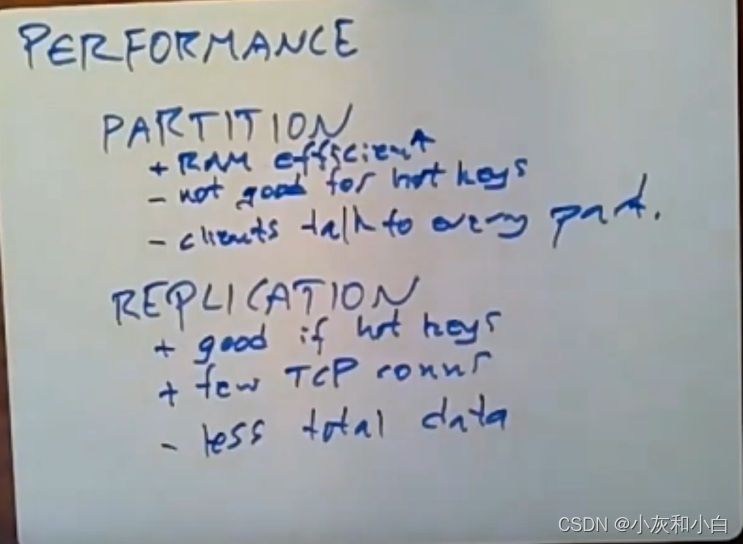 PERFORMANCE
PARTITION
+ RAM efficient
- not good for hot keys
- clients talk to every part.
REPLICATION
+ good if hot keys
+ few TCP conns
- less total data
CSDN @小灰和小白